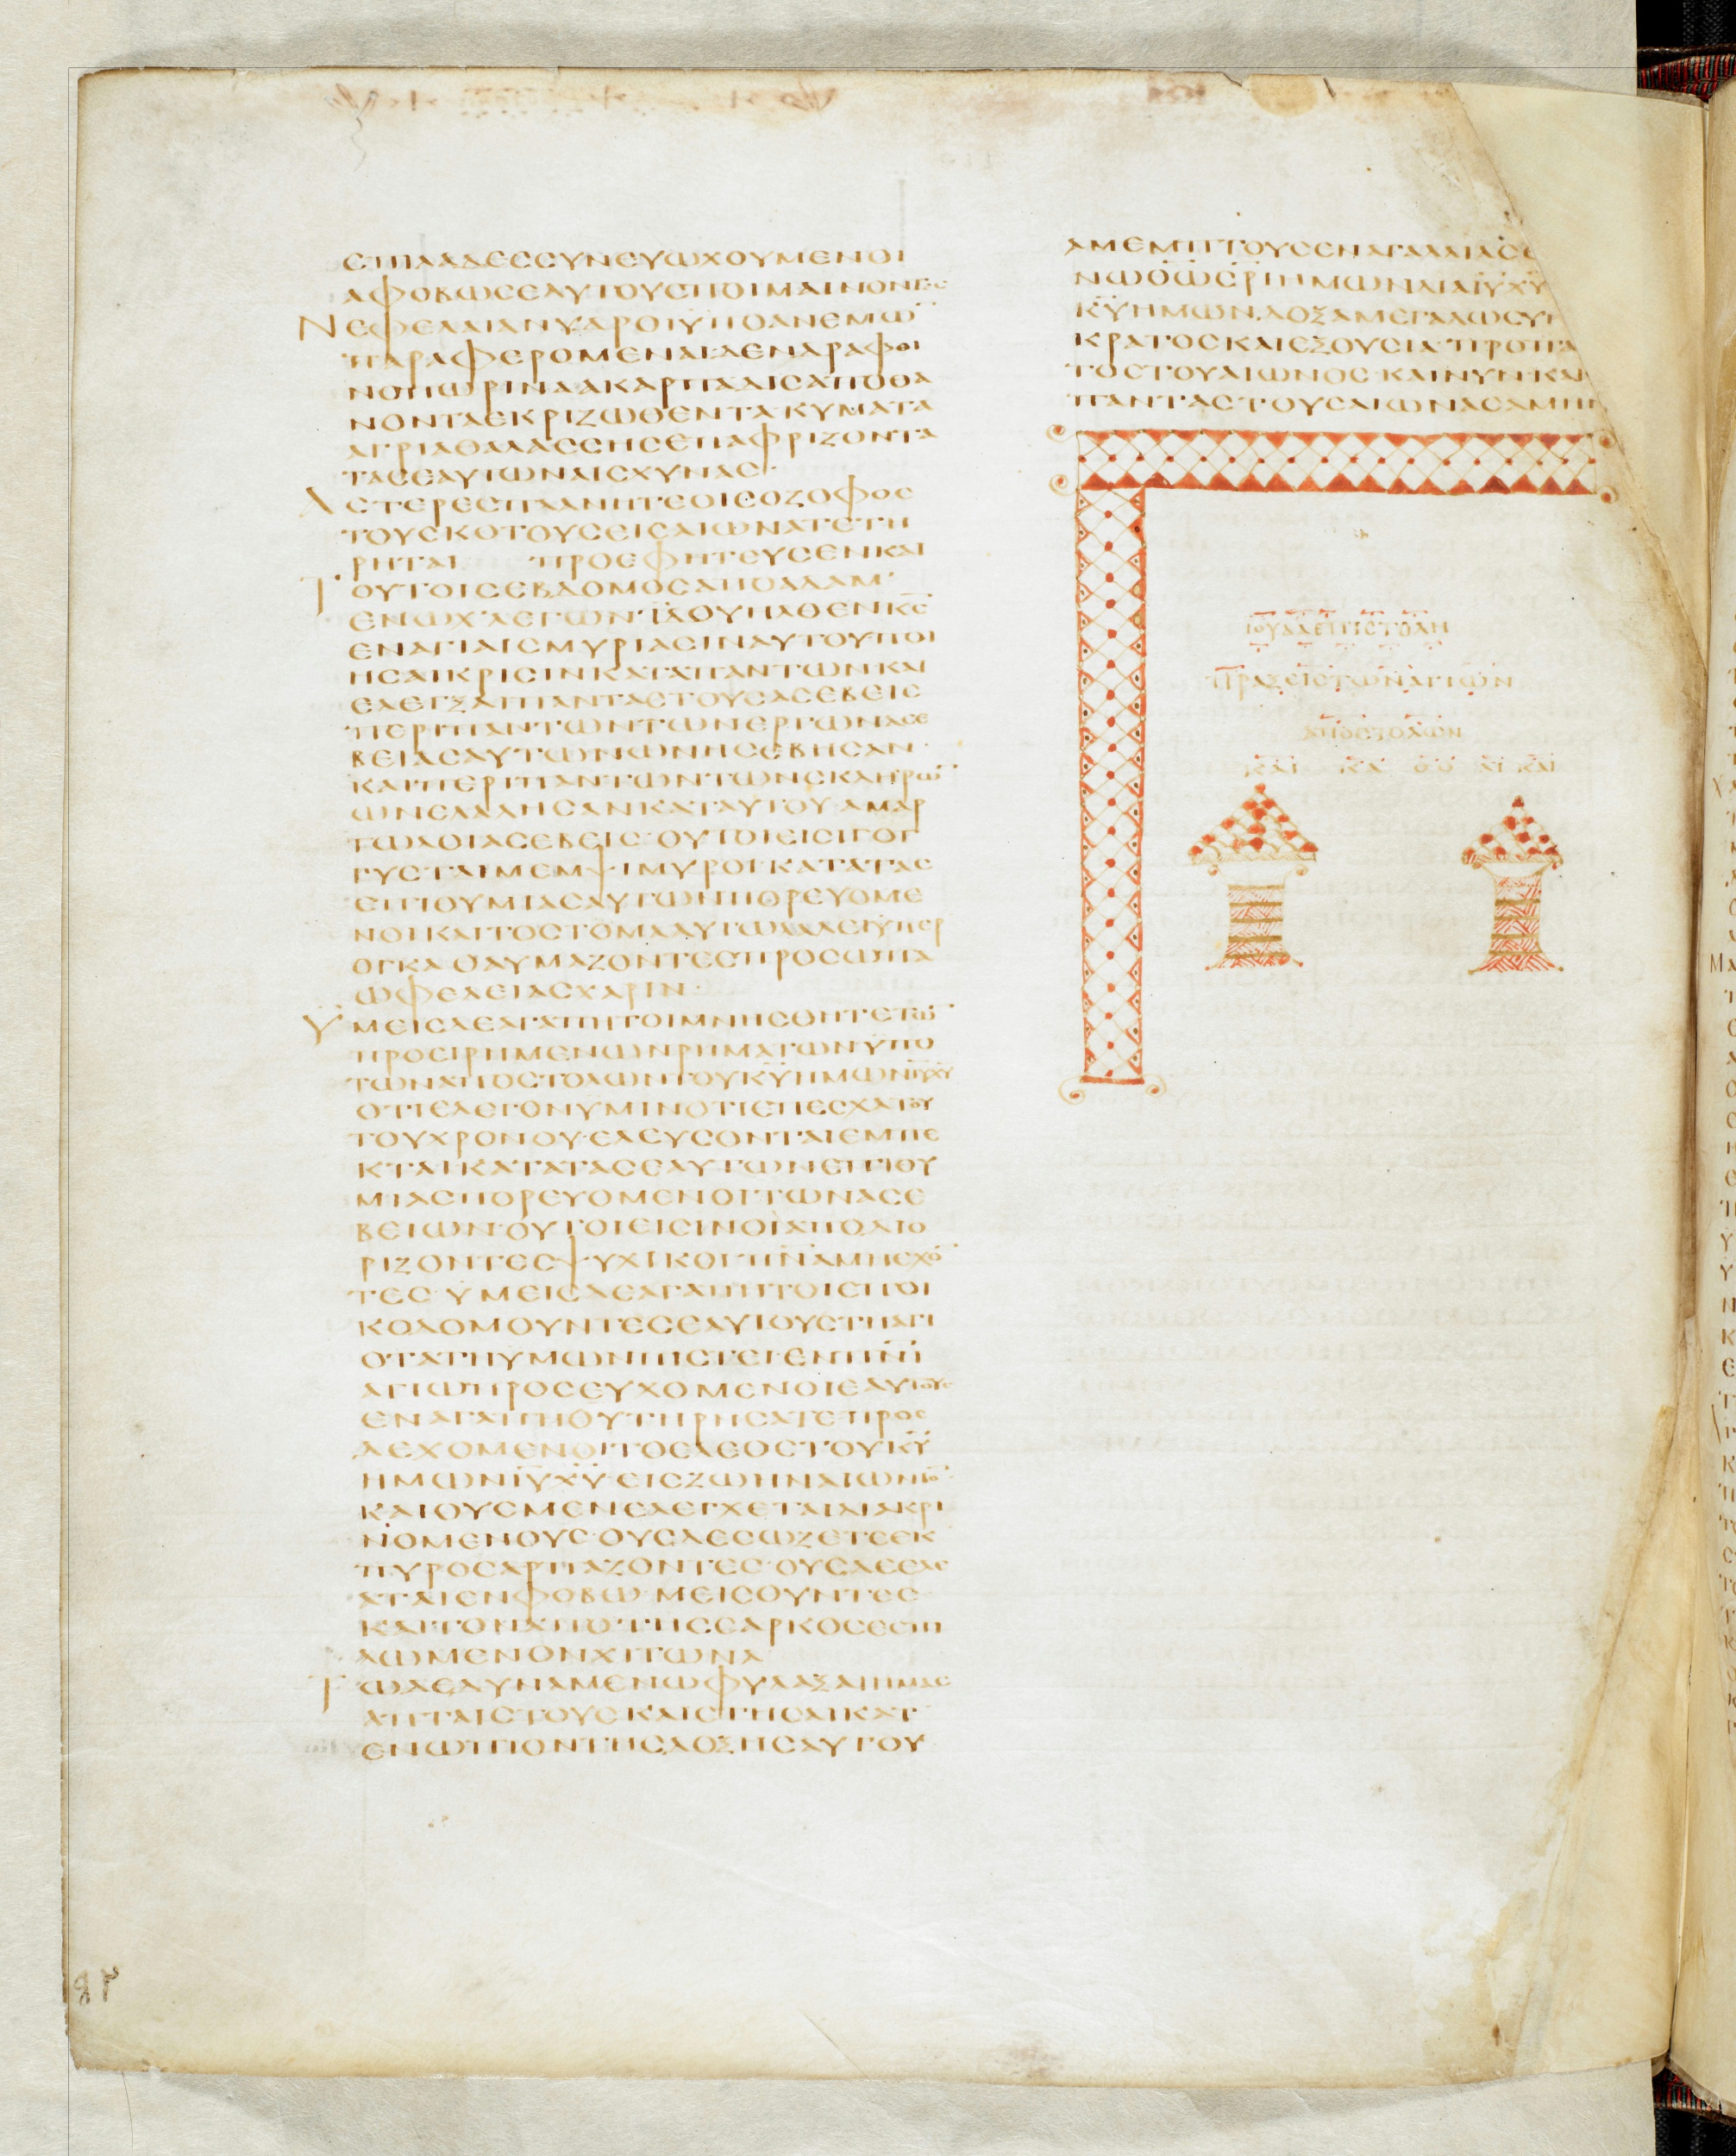 ΣΠΙΛΑΔΕΣΣΥΝΕΥΩΧΟΥΜΕΝΟΙ
ΑΦΟΒΩΣΕΑΥΤΟΥΣΠΟΙΜΑΙΝΟΝΤΕΣ
ΝΕΦΕΛΑΙΑΝΥΔΡΟΙΫΠΟΑΝΕΜΩ̅
ΠΑΡΑΦΕΡΟΜΕΝΑΙ·ΔΕΝΔΡΑΦΘΙ
ΝΟΠΩΡΙΝΑΑΚΑΡΠΑΔΙΣΑΠΟΘΑ
ΝΟΝΤΑΕΚΡΙΖΩΘΕΝΤΑ·ΚΥΜΑΤΑ
ΑΓΡΙΑΘΑΛΑΣΣΗΣΕΠΑΦΡΙΖΟΝΤΑ
ΤΑΣΕΑΥΤΩΝΑΙΣΧΥΝΑΣ·
ΑΣΤΕΡΕΣΠΛΑΝΗΤΕΟΙΣΟΖΟΦΟΣ
ΤΟΥΣΚΟΤΟΥΣΕΙΣΑΙΩΝΑΤΕΤΗ
ΡΗΤΑΙ ΠΡΟΕΦΗΤΕΥΣΕΝΚΑΙ
ΤΟΥΤΟΙΣΕΒΔΟΜΟΣΑΠΟΑΔΑΜ
ΕΝΩΧ·ΛΕΓΩΝ·ΪΔΟΥΗΛΘΕΝΚ̅Σ̅
ΕΝΑΓΙΑΙΣΜΥΡΙΑΣΙΝΑΥΤΟΥΠΟΙ
ΗΣΑΙΚΡΙΣΙΝΚΑΤΑΠΑΝΤΩΝΚΑΙ
ΕΛΕΓΞΑΙΠΑΝΤΑΣΤΟΥΣΑΣΕΒΕΙΣ
ΠΕΡΙΠΑΝΤΩΝΤΩΝΕΡΓΩΝΑΣΕ
ΒΕΙΑΣΑΥΤΩΝΩΝΗΣΕΒΗΣΑΝ·
ΚΑΙΠΕΡΙΠΑΝΤΩΝΤΩΝΣΚΛΗΡΩ̅
ΩΝΕΛΑΛΗΣΑΝΚΑΤΑΥΤΟΥ·ΑΜΑΡ
ΤΩΛΟΙΑΣΕΒΕΙΣ·ΟΥΤΟΙΕΙΣΙΓΟΓ
ΓΥΣΤΑΙΜΕΜΨΙΜΥΡΟΙΚΑΤΑΤΑΣ
ΕΠΙΟΥΜΙΑΣΑΥΤΩΝΠΟΡΕΥΟΜΕ
ΝΟΙΚΑΙΤΟΣΤΟΜΑΑΥΤΩΛΑΛΕΙΫΠΕΡ
ΟΓΚΑΘΑΥΜΑΖΟΝΤΕΣΠΡΟΣΩΠΑ
ΩΦΕΛΕΙΑΣΧΑΡΙΝ·
ΥΜΕΙΣΔΕΑΓΑΠΗΤΟΙΜΝΗΣΘΗΤΕΤΩ̅
ΠΡΟΣΙΡΗΜΕΝΩΝΡΗΜΑΤΩΝΫΠΟ
ΤΩΝΑΠΟΣΤΟΛΩΝΤΟΥΚ̅Υ̅ΗΜΩΝΙ̅Υ̅Χ̅Υ̅
ΟΤΙΕΛΕΓΟΝΥΜΙΝΟΤΙΕΠΕΣΧΑΤΟΥ
ΤΟΥΧΡΟΝΟΥ·ΕΛΕΥΣΟΝΤΑΙΕΜΠΕ
ΚΤΑΙΚΑΤΑΤΑΣΕΑΥΤΩΝΕΠΙΘΥ
ΜΙΑΣΠΟΡΕΥΟΜΕΝΟΙΤΩΝΑΣΕ
ΒΕΙΩΝ·ΟΥΤΟΙΕΙΣΙΝΟΙΑΠΟΔΙΟ
ΡΙΖΟΝΤΕΣΨΥΧΙΚΟΙ·Π̅Ν̅ΑΜΗΕΧΟ̅
ΤΕΣ·ΥΜΕΙΣΔΕΑΓΑΠΗΤΟΙΕΠΟΙ
ΚΟΔΟΜΟΥΝΤΕΣΕΑΥΤΟΥΣΤΗΑΓΙ
ΟΤΑΤΗΥΜΩΝΠΙΣΤΕΙ·ΕΝΠ̅Ν̅Ι̅
ΑΓΙΩΠΡΟΣΕΥΧΟΜΕΝΟΙΕΑΥΤΟΥΣ
ΕΝΑΓΑΠΗΘΥΤΗΡΗΣΑΤΕΠΡΟΣ
ΔΕΧΟΜΕΝΟΙΤΟΕΛΕΟΣΤΟΥΚ̅Υ̅
ΗΜΩΝΙ̅Υ̅Χ̅Υ̅·ΕΙΣΖΩΗΝΑΙΩΝΙΟ̅
ΚΑΙΟΥΣΜΕΝΕΛΕΓΧΕΤΑΙΔΙΑΚΡΙ
ΝΟΜΕΝΟΥΣ·ΟΥΣΔΕΣΩΖΕΤΕΕΚ
ΠΥΡΟΣΑΡΠΑΖΟΝΤΕΣ·ΟΥΣΔΕΕΛΕ
ΑΤΑΙΕΝΦΟΒΩ·ΜΕΙΣΟΥΝΤΕΣ
ΚΑΙΤΟΝΑΠΟΤΗΣΣΑΡΚΟΣΕΣΠΙ
ΛΩΜΕΝΟΝΧΙΤΩΝΑ
ΤΩΔΕΔΥΝΑΜΕΝΩΦΥΛΑΞΑΙΗΜΑΣ
ΑΠΤΑΙΣΤΟΥΣΚΑΙΣΤΗΣΑΙΚΑΤ
ΕΝΩΠΙΟΝΤΗΣΔΟΞΗΣΑΥΤΟΥ
ΑΜΕΜΠΤΟΥΣΕΝΑΓΑΛΛΙΑΣΕ
ΝΩΘ̅Ω̅Σ̅Ρ̅Ι̅ΗΜΩΝΔΙΑΙ̅Υ̅Χ̅Υ̅
Κ̅Υ̅ΗΜΩΝ·ΔΟΞΑΜΕΓΑΛΩΣΥΝ
ΚΡΑΤΟΣΚΑΙΕΞΟΥΣΙΑ·ΠΡΟΠΑ
ΤΟΣΤΟΥΑΙΩΝΟΣ·ΚΑΙΝΥΝ·ΚΑΙ
ΠΑΝΤΑΣΤΟΥΣΑΙΩΝΑΣΑΜΗΝ
ΙΟΥΔΑΕΠΙΣΤΟΛΗ
ΠΡΑΞΕΙΣΤΩΝΑΓΙΩΝ
ΑΠΟΣΤΟΛΩΝ
ΚΑΙ ΚΑ ΘΟ ΛΙ ΚΑΙ